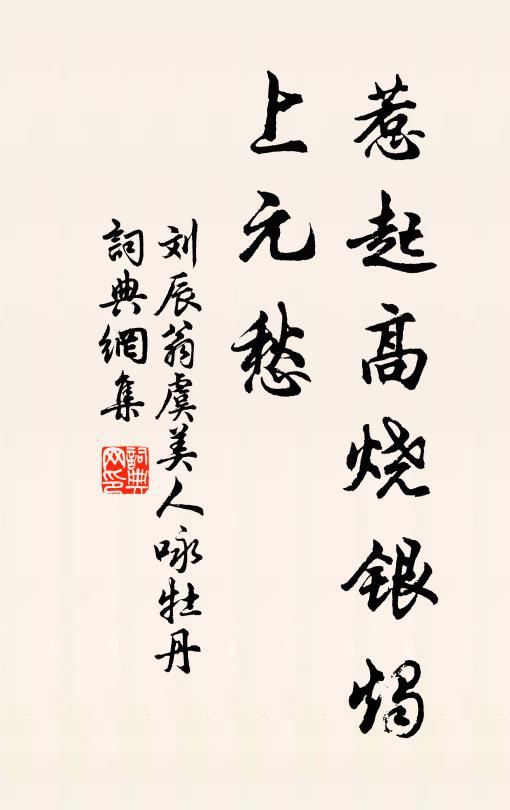 惹起高烧银烛
上元愁
刘辰翁虞美人咏牡丹
詞典網集
詞典网印